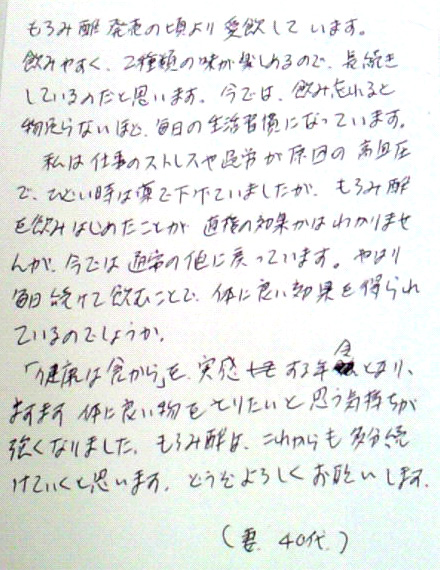 もろみ酢発売の頃より愛飲しています。
飲みやすく、2種類の味が楽しめるので、長続き
しているのだと思います。今では、飲み忘れると
物足らないほど、毎日の生活習慣になっています。
私は仕事のストレスや過労が原因の高血圧
で、ひどい時は薬で下げていましたが、もろみ酢
を飲みはじめたことが直接の効果かはわかりませ
んが、今では通常の値に戻っています。やはり
毎日続けて飲むことで、体に良い効果を得られ
ているのでしょうか。
「健康は食から」を、実感する年令となり、
ますます体に良い物をとりたいと思う気持ちが
強くなりました。もろみ酢は、これからも多分続
けていくと思います。どうぞよろしくお願いします。
(妻 40代)